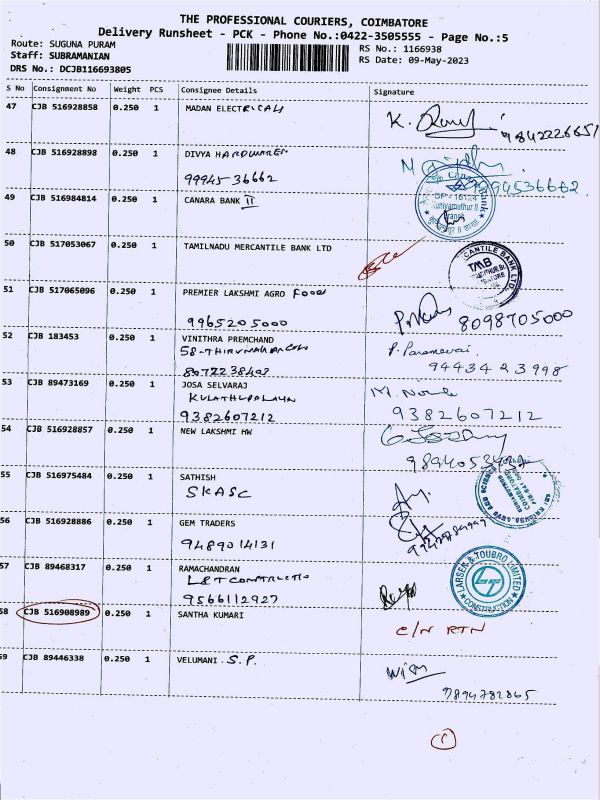 THE PROFESSIONAL COURIERS, COIMBATORE
Delivery Runsheet - PCK - Phone No.:0422-3505555 - Page No.:5
Route: SUGUNA PURAM
Staff: SUBRAMANIAN
DRS No.: DCJB116693805
RS No.: 1166938
RS Date: 09-May-2023
S No Consignment No Weight PCS Consignee Details Signature
47 CJB 516928858 0.250 1 MADAN ELECTRICALS
K.
9842226651
48 CJB 516928898 0.250 1 DIVYA HARDWARES
9994536662
9994536662
49 CJB 516984814 0.250 1 CANARA BANK II
Canara Bank
Kuniyamuthur II
Branch
50 CJB 517053067 0.250 1 TAMILNADU MERCANTILE BANK LTD
CANTILE BANK LTD
TMB
51 CJB 517065096 0.250 1 PREMIER LAKSHMI AGRO Food
9965205000
8098705000
52 CJB 183453 0.250 1 VINITHRA PREMCHAND
58-THIRUNAGAR COLO
8072238407
P. Parameswari
9443423998
53 CJB 89473169 0.250 1 JOSA SELVARAJ
KULATHUPALAYM
9382607212
M.
9382607212
54 CJB 516928857 0.250 1 NEW LAKSHMI HW
55 CJB 516975484 0.250 1 SATHISH
SKASC
56 CJB 516928886 0.250 1 GEM TRADERS
9489014131
57 CJB 89468317 0.250 1 RAMACHANDRAN
L&T CONSTRUCTIO
9566112927
LARSEN & TOUBRO LIMITED
CONSTRUCTION
58 CJB 516908989 0.250 1 SANTHA KUMARI
C/N RTN
59 CJB 89446338 0.250 1 VELUMANI . S.P.
9894782865
1